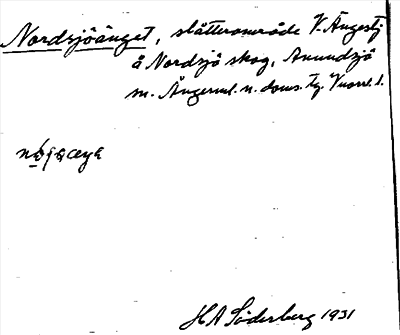 Nordsjöänget, slåtterområde V. Ängestj
å Nordsjö skog, Anundsjö
m. Ångerml. n. doms. Tg. Vuorl. s.
HA Söderberg 1931